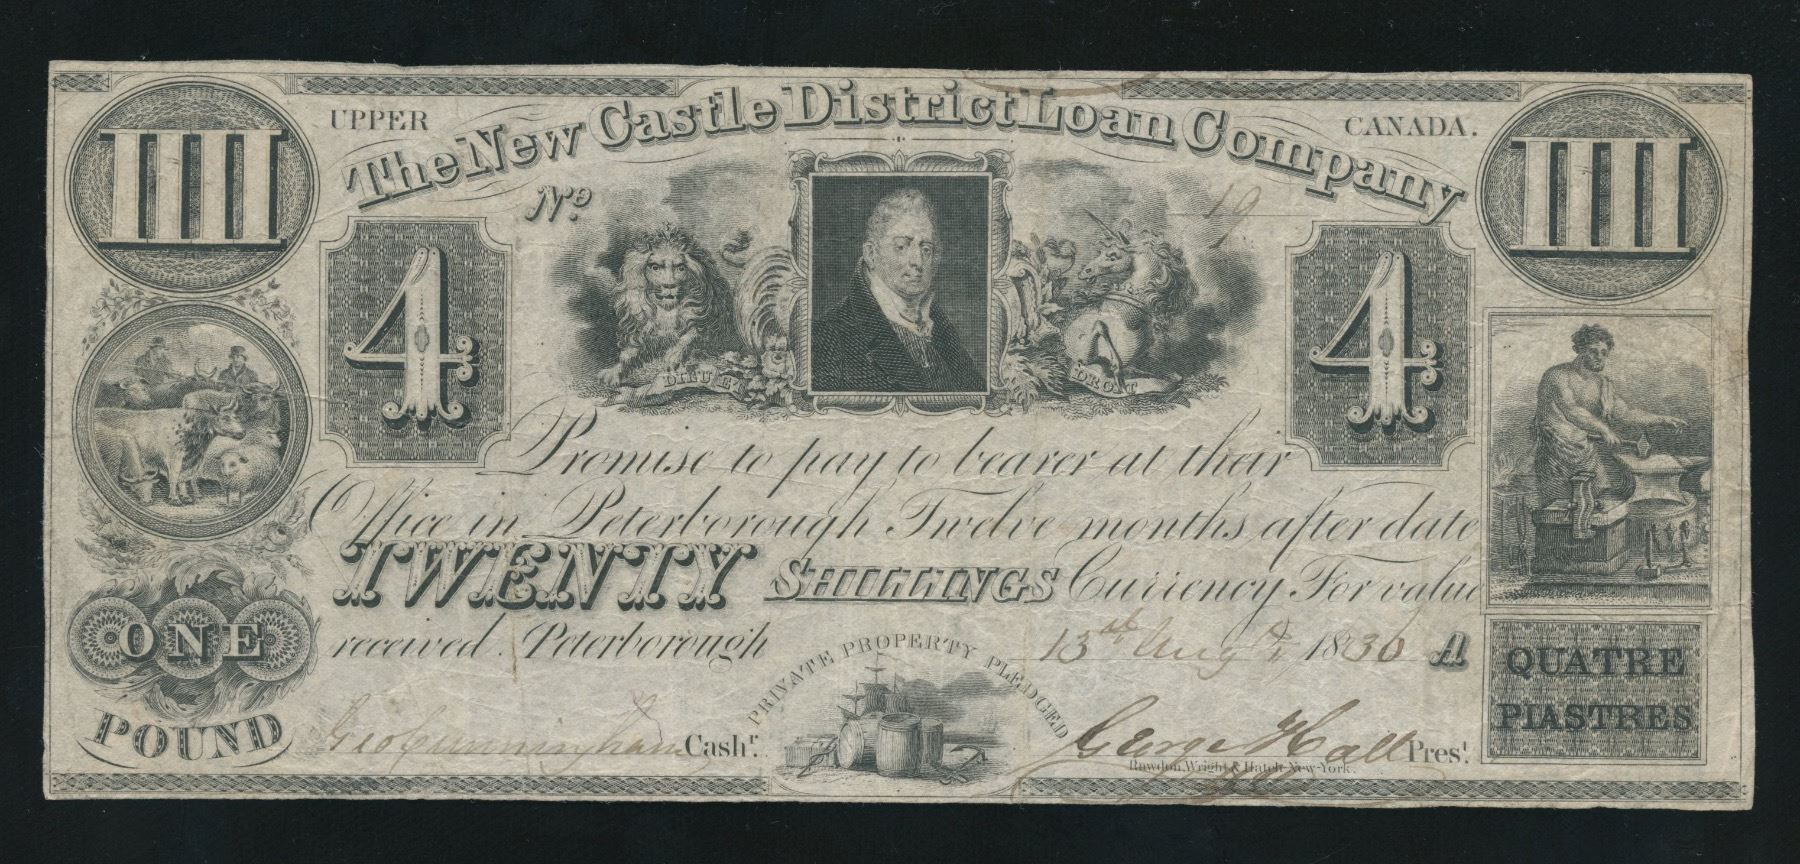 IIII
UPPER
CANADA.
IIII
The New Castle District Loan Company
No 19
4
4
DIEU ET
DROIT
Promise to pay to bearer at their
Office in Peterborough Twelve months after date
TWENTY SHILLINGS Currency For value
received. Peterborough 13th Aug't 1836 A
ONE
POUND
PRIVATE PROPERTY PLEDGED
QUATRE
PIASTRES
Geo Cunningham Cashr.
George Hall Prest.
Rawdon, Wright & Hatch New-York.